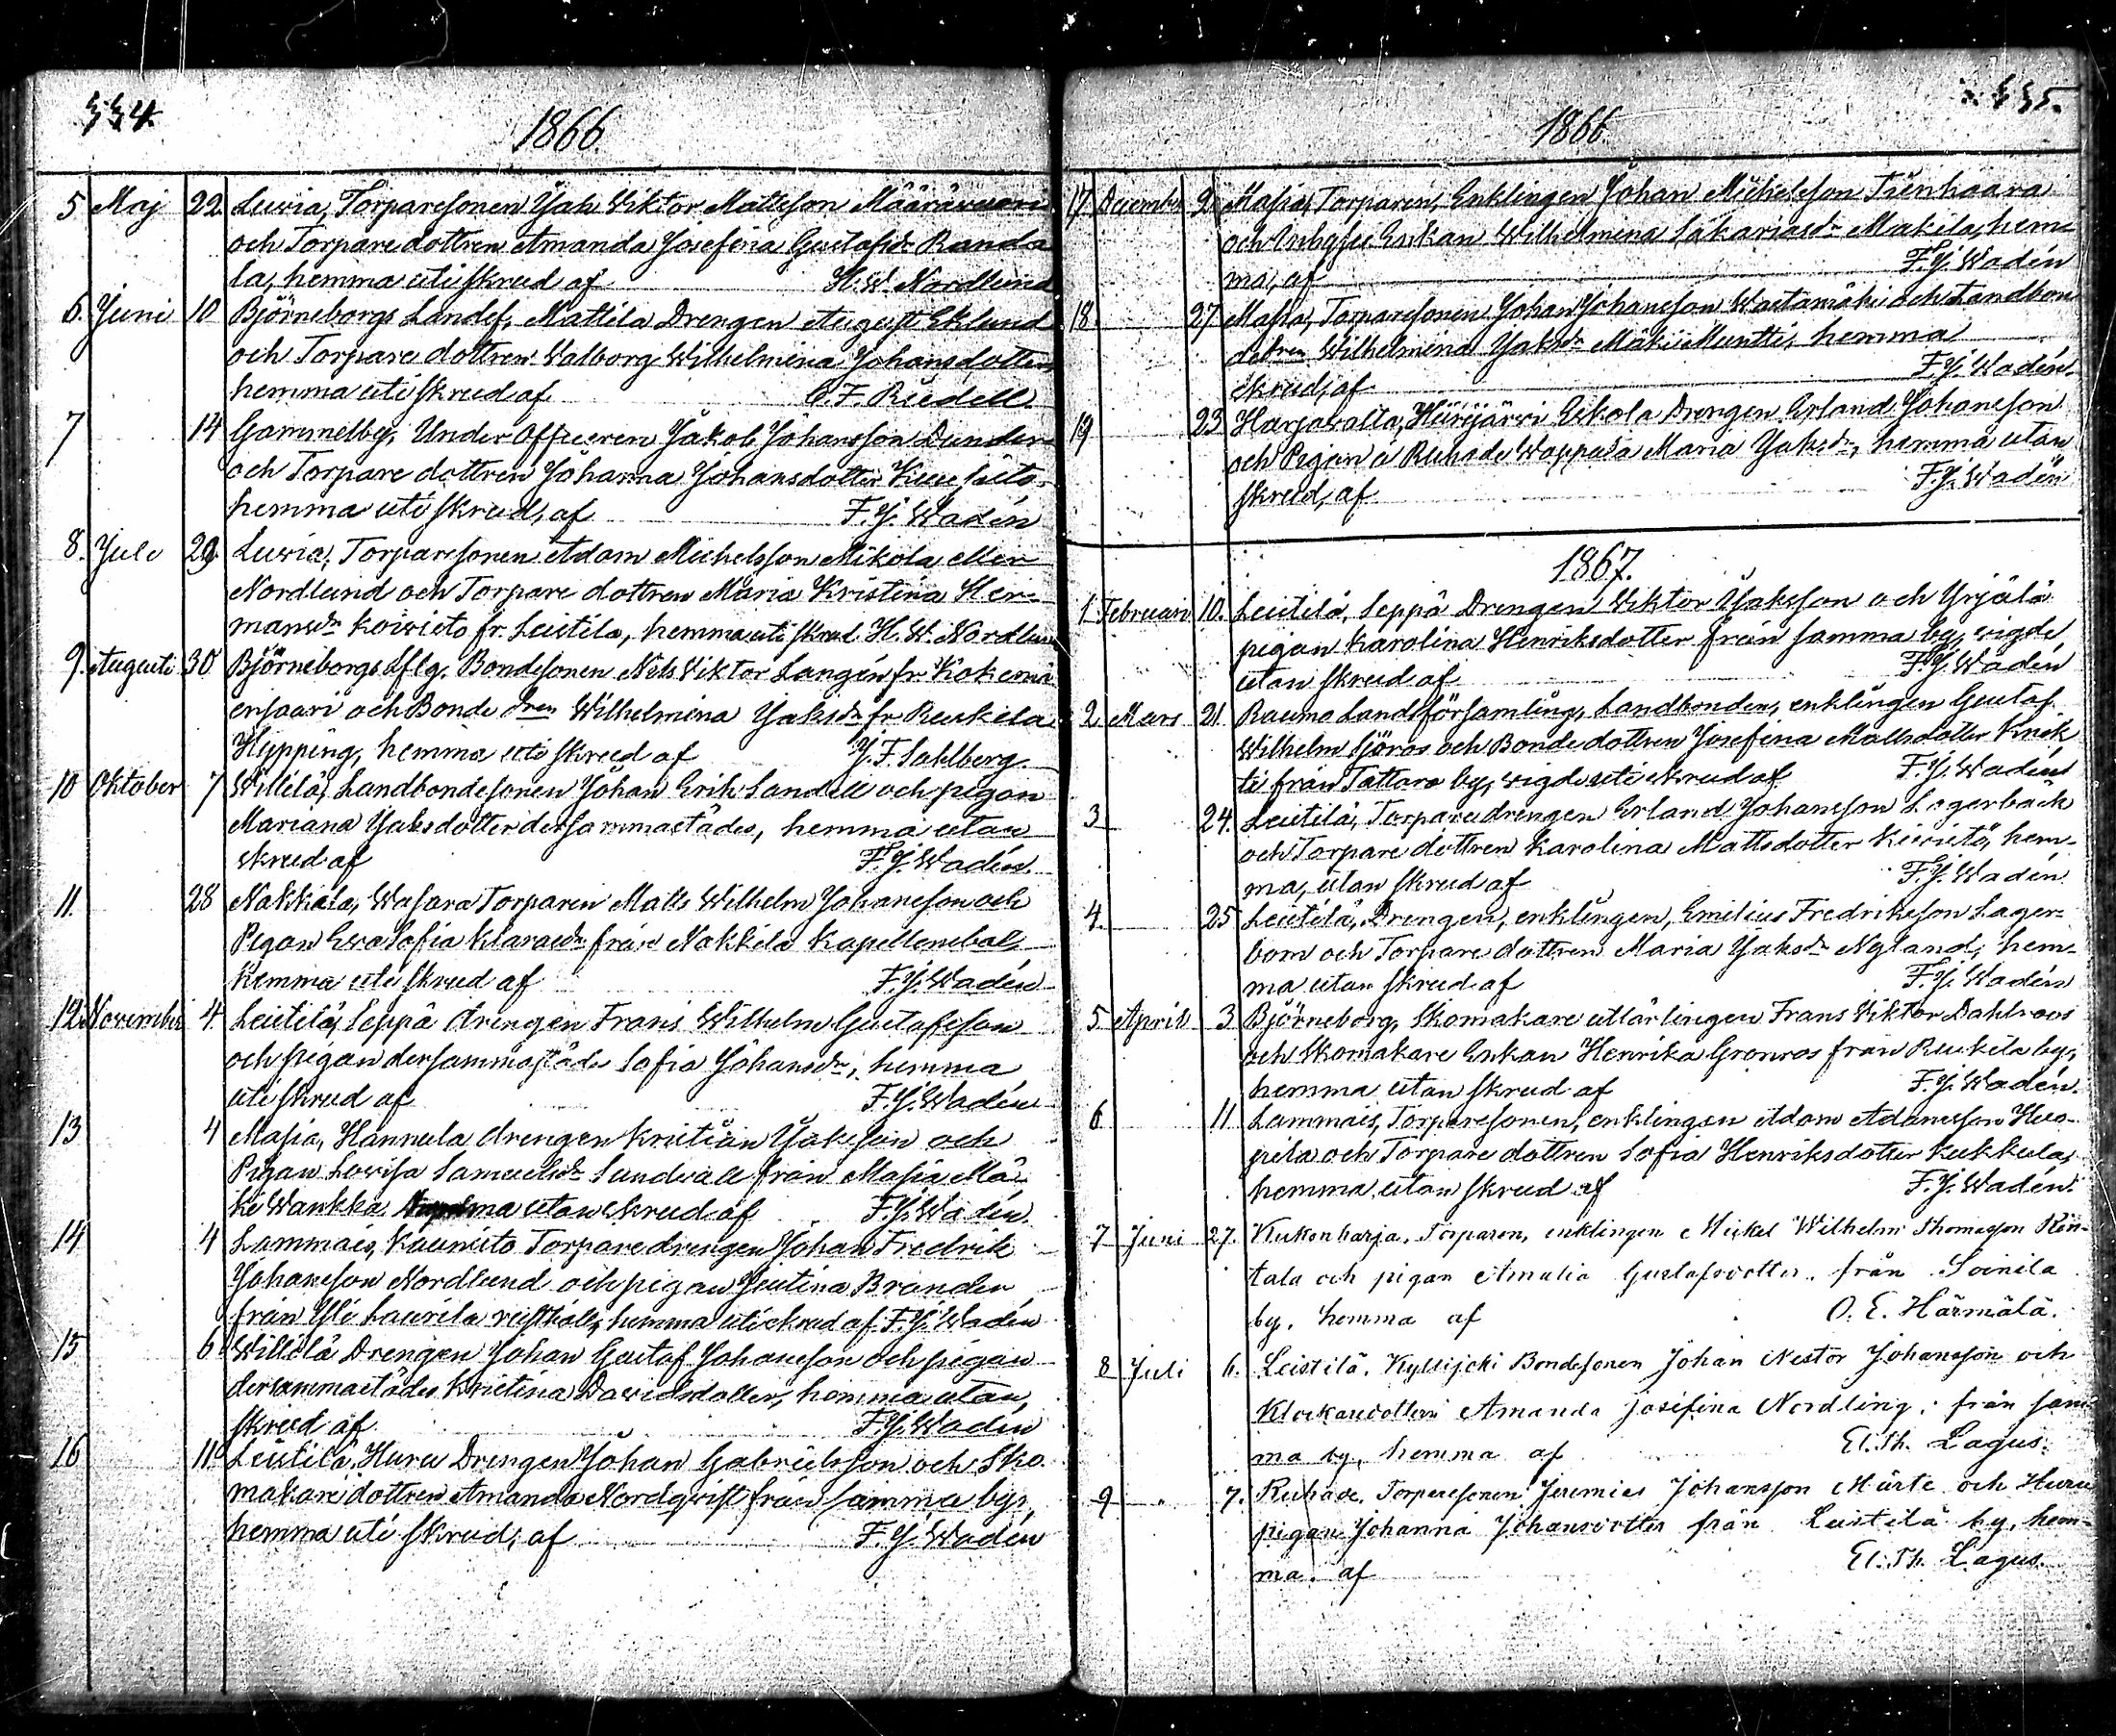 554.
1866.
5 Maj 22 Luvia, Torparesonen Jak Viktor Matteson Määrävuori
och Torparedottren Amanda Josefina Gustafsdr Randa
la, hemma uti skrud af H. W. Nordlund
6. Juni 10 Björneborgs Landsf. Mattila Drengen August Eklund
och Torpare dottren Valborg Wilhelmina Johansdotter,
hemma uti skrud af C. F. Riedell.
7 14 Gammelby, Under Officeren Jakob Johansson Dunder
och Torpare dottren Johanna Johansdotter
hemma uti skrud, af F. J. Wadén
8. Juli 29. Luvia, Torparesonen Adam Michelsson Mikola eller
Nordlund och Torpare dottren Maria Kristina Her-
mansdr Koivisto fr. Leistilä, hemma uti skrud H. W. Nordlund
9. Augusti 30 Björneborgs Lflg. Bondesonen Nils Viktor Langén fr. Kokemä
ensaari och Bonde dren Wilhelmina Jaksdr fr. Ruskila
Hypping, hemma uti skrud af J. F. Sahlberg.
10 Oktober 7 Willilä, Landbondesonen Johan Erik Sandell och pigan
Mariana Jaksdotter dersammastädes, hemma utan
skrud af F. J. Wadén.
11. 28 Nakkila, Wasara Torparen Matts Wilhelm Johansson och
Pigan Eva Sofia Klarasdr från Nakkila Kapellansbol,
hemma uti skrud af F. J. Wadén
12. November 4. Leistilä, Seppä drengen Frans Wilhelm Gustafsson
och pigan dersammastädes Sofia Johansdr, hemma
uti skrud af F. J. Wadén
13 4 Masia, Hannula drengen Kristian Jaksson och
Pigan Lovisa Samuelsdr Sundvall från Masia Mä-
ki Wankka hemma utan skrud af F. J. Wadén.
14 4 Lammais, Kaunisto Torparedrengen Johan Fredrik
Johansson Nordlund och pigan Justina Brander
från Yli Laurila rusthåll, hemma uti skrud af F. J. Wadén
15 6 Willilä Drengen Johan Gustaf Johansson och pigan
dersammastädes Kristina Davidsdotter, hemma utan
skrud af F. J. Wadén
16 11 Leistilä, Huru Drengen Johan Gabrielsson och Sko-
makare dottren Amanda Nordqvist från samma by,
hemma uti skrud, af F. J. Wadén
555.
1866.
17 December 2. Masia, Torparen, Enklingen Johan Michelsson Trenkaara
och Inhyses Enkan Wilhelmina Sakariasdr Makila, hem-
ma, af F. J. Wadén
18. 27 Masia, Torparesonen Johan Johansson Wartamäki och Landbon
dotren Wilhelmina Jaksdr Mäki Muntti, hemma
skrud, af F. J. Wadén.
19 23 Harjavalta, Hiirijärvi Eskola Drengen Erland Johansson
och Pigan å Ruhade Maria Jaksdr, hemma utan
skrud, af F. J. Wadén
1867.
1 Februari 10. Leistilä, Seppä Drengen Viktor Jaksson och Yrjälä
pigan Karolina Henriksdotter från samma by, vigde
utan skrud af F. J. Wadén
2 Mars 21. Raumo Landsförsamling, Landbonden, enklingen Gustaf
Wilhelm Sjöros och Bondedottren Josefina Mattsdotter Knik
ti från Tattara by, vigde uti skrud af F. J. Wadén
3 24. Leistilä, Torparedrengen Erland Johansson Lagerbäck
och Torpare dottren Karolina Mattsdotter Kivistö, hem-
ma, utan skrud af F. J. Wadén
4. 25 Leistilä, Drengen, enklingen, Emilius Fredriksson Lager-
bom och Torpare dottren Maria Jaksdr Nyland, hem-
ma utan skrud af F. J. Wadén
5 April 3 Björneborg, Skomakare utlärlingen Frans Viktor Dahlroos
och Skomakare Enkan Henrika Grönroos från Ruskila by,
hemma utan skrud af F. J. Wadén.
6 11 Lammais, Torparesonen, enklingen Adam Adamsson Huo-
pila och Torpare dottren Sofia Henriksdotter Kukkula,
hemma utan skrud af F. J. Wadén.
7 Juni 27. Kukonharja, Torparen, enklingen Mickel Wilhelm Thomasson Rin-
tala och pigan Amalia Gustafsdotter från Soinila
by, hemma af O. E. Härmälä.
8 Juli 6. Leistilä, Kyllijoki Bondesonen Johan Nestor Johansson och
Klockaredottren Amanda Josefina Nordling, från sam-
ma by, hemma af El. Th. Lagus.
9 " 7. Ruhade, Torparesonen Jeremias Johansson Märte och Huru
pigan Johanna Johansdotter från Leistilä by, hem-
ma af El. Th. Lagus.